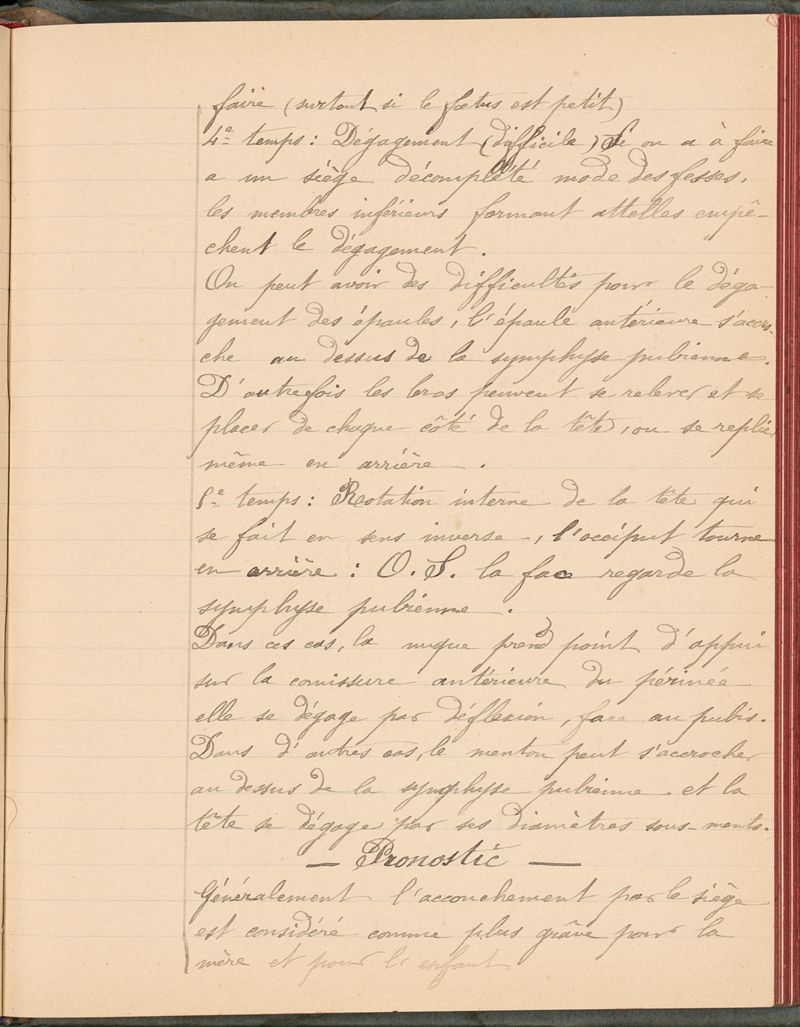 faire (surtout si le fœtus est petit)
4e temps: Dégagement (difficile) Si on a à faire
a un siège décomplété mode des fesses,
les membres inférieurs formant attelles empê-
chent le dégagement.
On peut avoir des difficultés pour le déga-
gement des épaules, l'épaule antérieure s'accro-
che au dessus de la symphyse pubienne.
D'autrefois les bras peuvent se relever et se
placer de chaque côté de la tête, ou se replier
même en arrière.
5e temps: Rotation interne de la tête qui
se fait en sens inverse -, l'occiput tourne
en arrière: O.S. la face regarde la
symphyse pubienne.
Dans ces cas, la nuque prend point d'appui
sur la comissure antérieure du périnée
elle se dégage par déflexion, face au pubis.
Dans d'autres cas, le menton peut s'accrocher
au dessus de la symphyse pubienne et la
tête se dégage par ses diamètres sous-mento-
— Pronostic —
Généralement l'accouchement par le siège
est considéré comme plus grâve pour la
mère et pour l'enfant